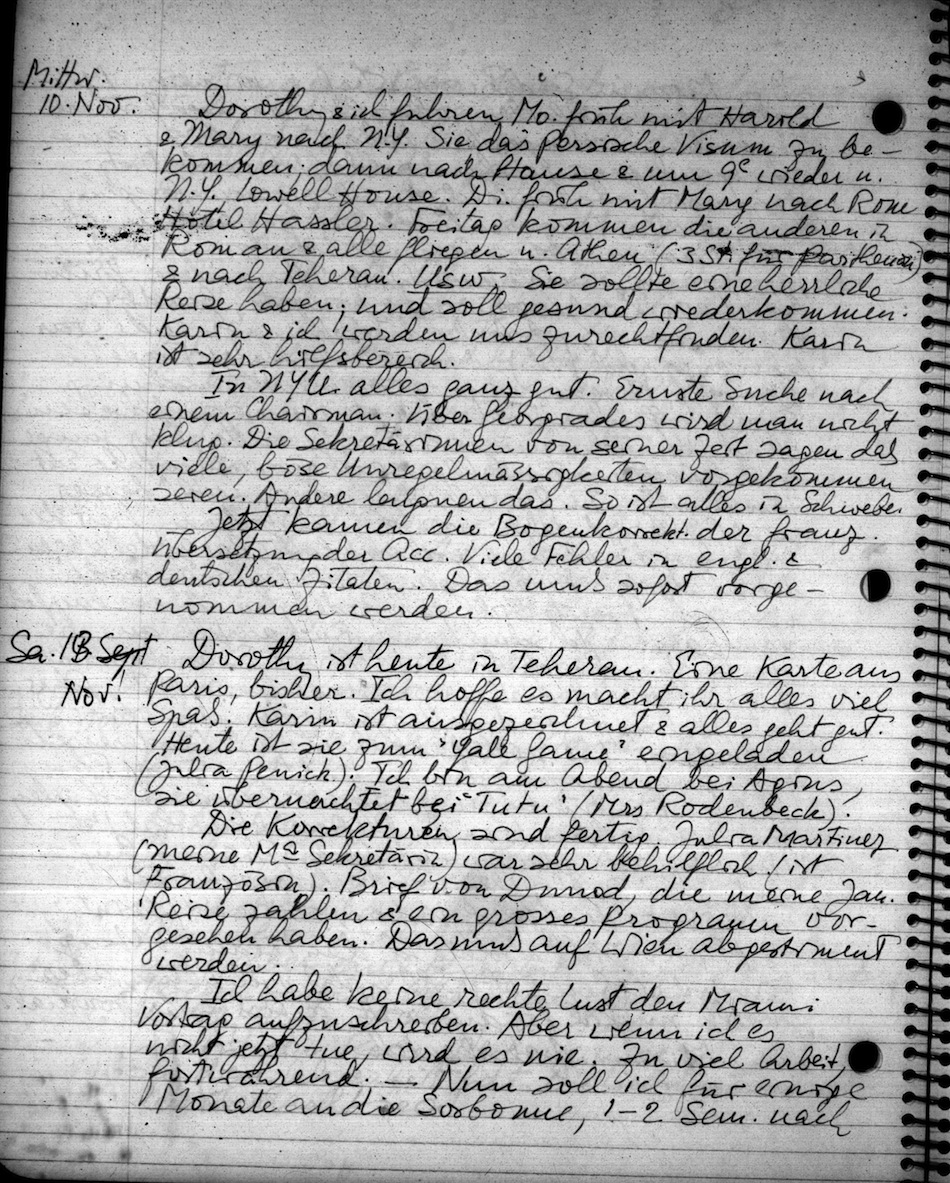 Mittw.
10. Nov. Dorothy & ich fuhren Mo. früh mit Harold
& Mary nach N.Y. Sie das Persische Visum zu be-
kommen; dann nach Hause & um 9ᵉ wieder n.
N.Y. Lowell House. Di. früh mit Mary nach Rom
Hotel Hassler. Freitag kommen die anderen in
Rom an & alle fliegen n. Athen (3 St für Parthenon)
& nach Teheran. Usw. Sie sollte eine herrliche
Reise haben; und soll gesund wiederkommen.
Karin & ich werden uns zurechtfinden. Karin
ist sehr hilfsbereich.
In NYU. alles ganz gut. Ernste Suche nach
einem Chairman. Über Georgiades wird man nicht
klug. Die Sekretärinnen von seiner Zeit sagen das
viele, böse Unregelmässigkeiten vorgekommen
seien. Andere leugnen das. So ist alles in Schwebe.
Jetzt kamen die Bogenkorrekt. der franz.
Übersetzung der Acc. Viele Fehler in engl. &
deutschen Zitaten. Das muß sofort vorge-
nommen werden.
Sa. 13 Sept Dorothy ist heute in Teheran. Eine Karte aus
Nov. Paris, bisher. Ich hoffe es macht ihr alles viel
Spaß. Karin ist ausgezeichnet & alles geht gut.
Heute ist sie zum "Yale Game" eingeladen
(Julia Penick). Ich bin am Abend bei Agins,
sie übernachtet bei "Tutu" (Mrs Rodenbeck).
Die Korrekturen sind fertig. Julia Martinez
(meine Mª Sekretärin) war sehr behilflich (ist
Französin). Brief von Dunod, die meine Jan.
Reise zahlen & ein grosses Programm vor-
gesehen haben. Das muß auf Wien abgestimmt
werden.
Ich habe keine rechte Lust den Miami
Vortrag aufzuschreiben. Aber wenn ich es
nicht jetzt tue, wird es nie. Zu viel Arbeit,
fortwährend. — Nun soll ich für einige
Monate an die Sorbonne, 1-2 Sem. nach